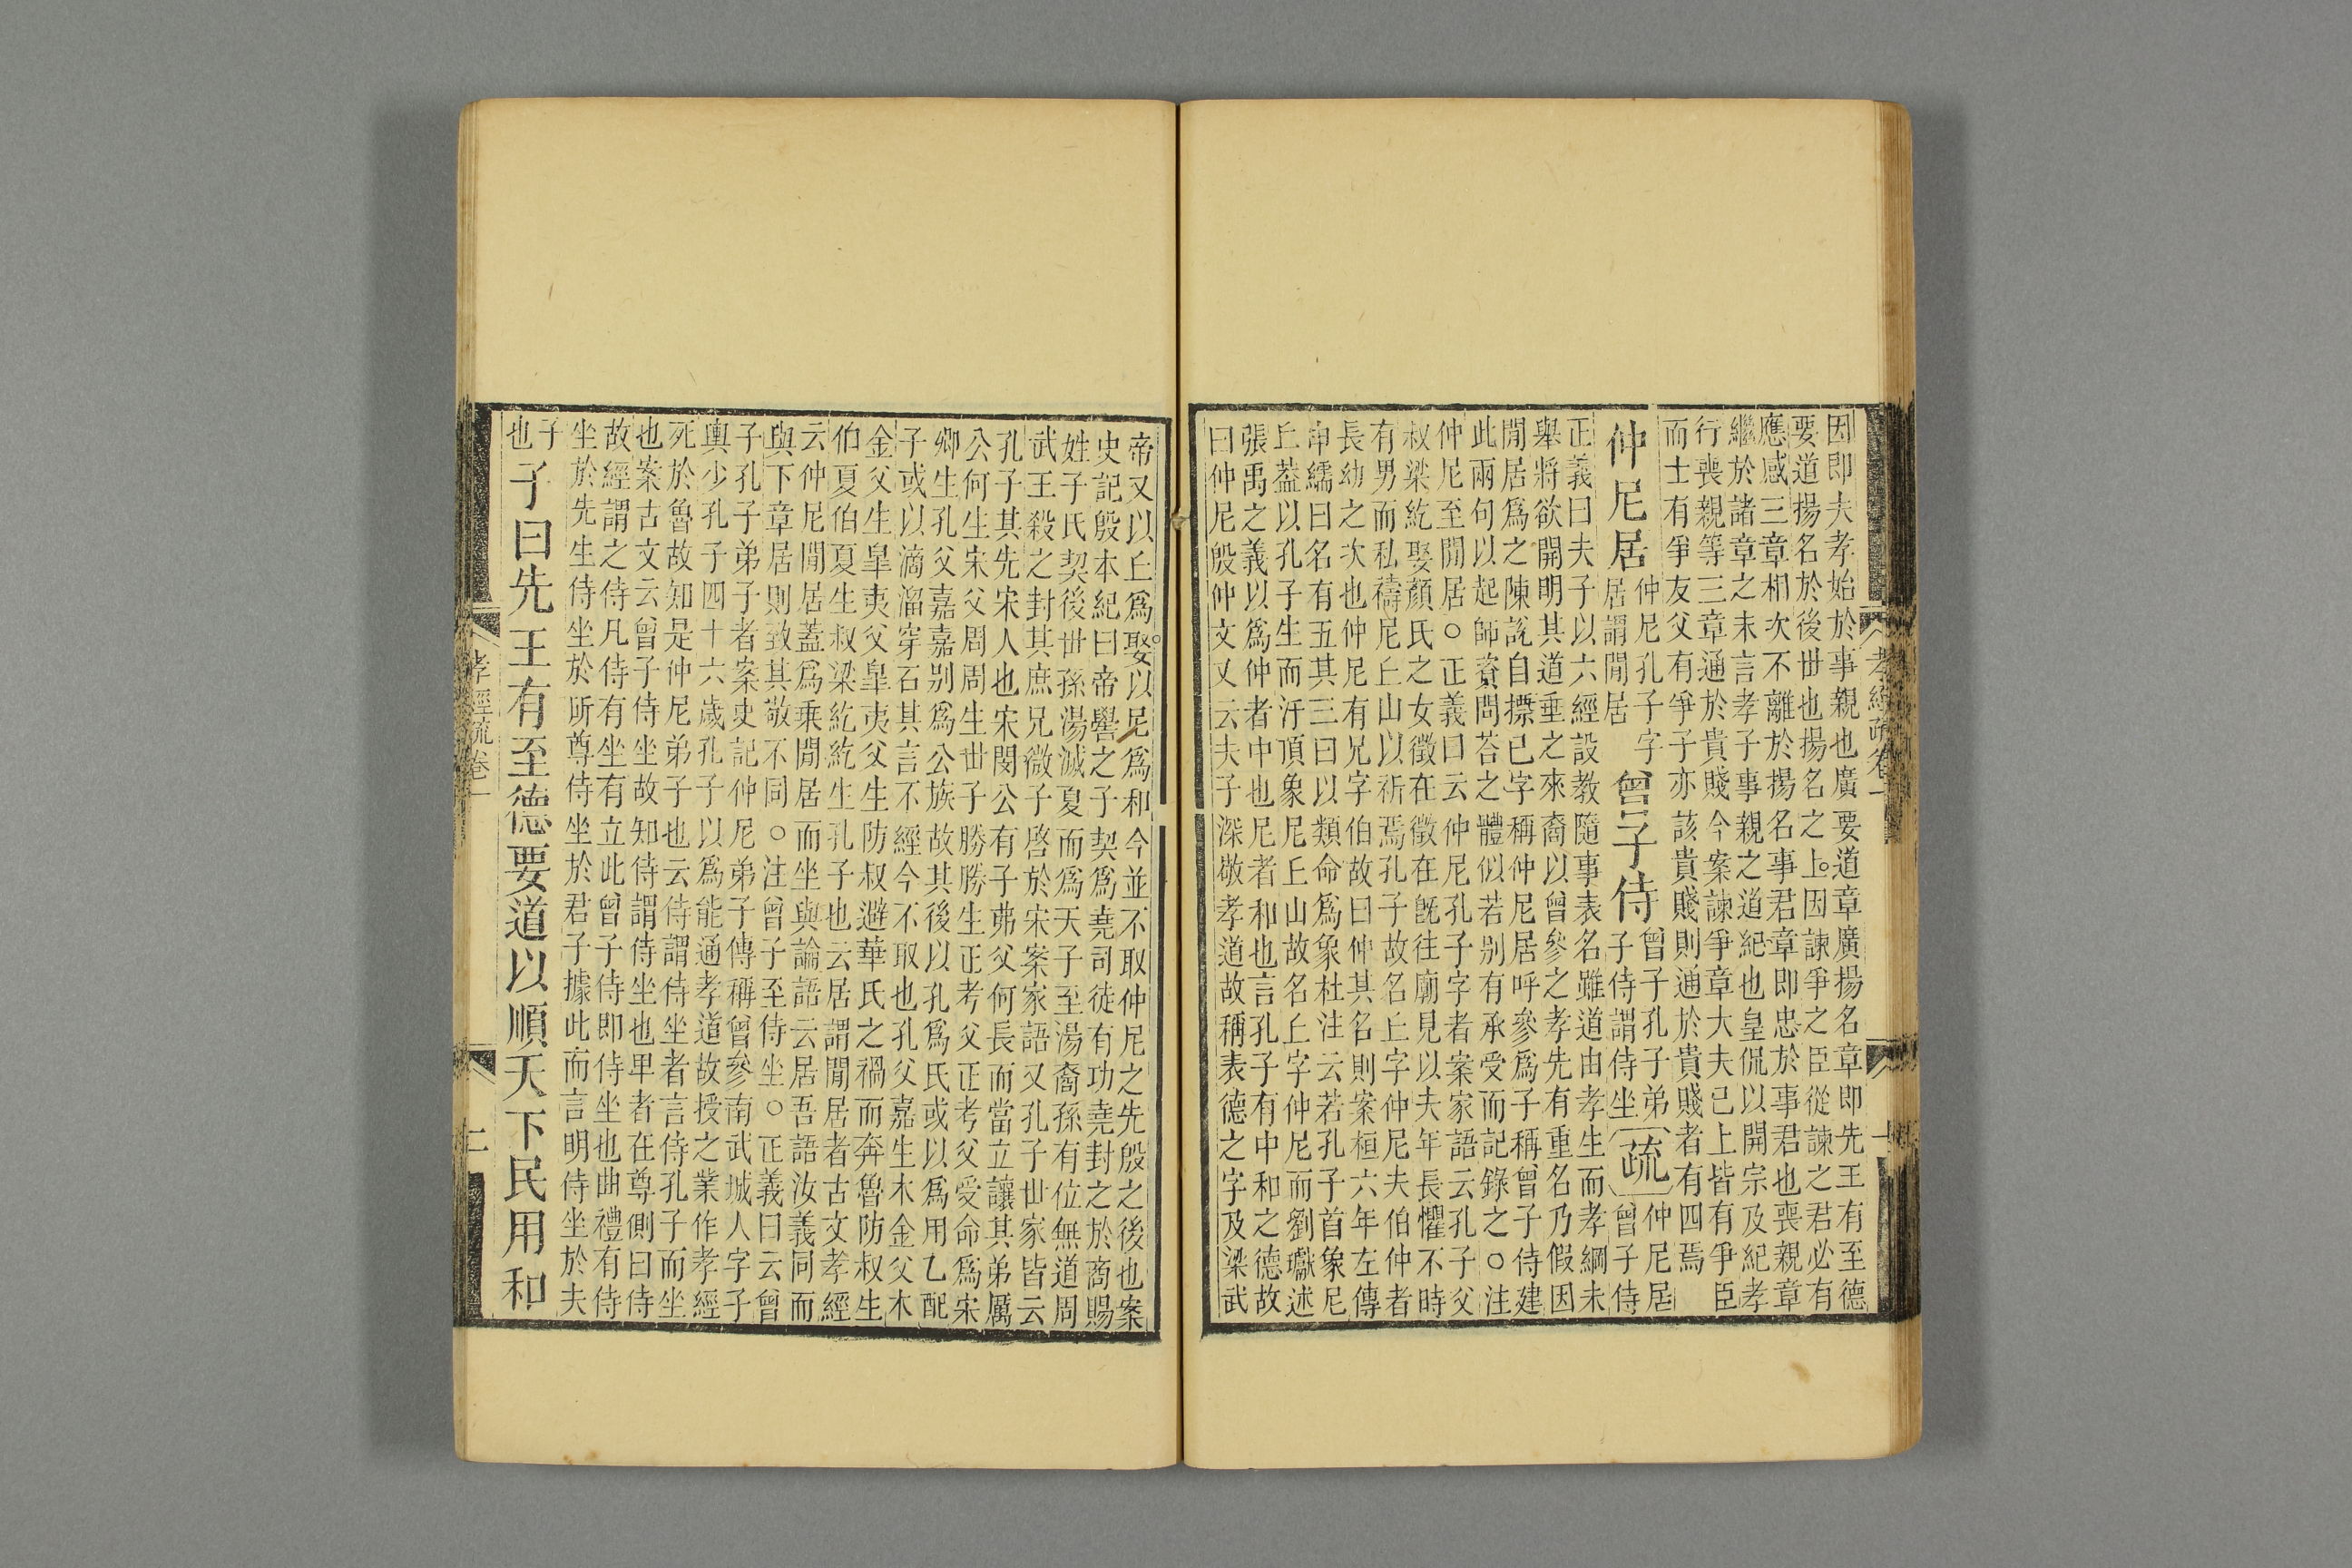 因即夫孝始於事親也廣要道章廣揚名章即先王有至德
要道揚名於後世也揚名之上因諫爭之臣從諫之君必有
應感三章相次不離於揚名事君章即忠於事君也喪親章
繼於諸章之末言孝子事親之道紀也皇侃以開宗及紀孝
行喪親等三章通於貴賤今案諫爭章大夫已上皆有爭臣
而士有爭友父有爭子亦該貴賤則通於貴賤者有四焉
仲尼居 仲尼孔子字居謂閒居 曾子侍 曾子孔子弟子侍謂侍坐 疏 仲尼居曾子侍
正義曰夫子以六經設教隨事表名雖道由孝生而孝綱未
舉將欲開明其道垂之來裔以曾參之孝先有重名乃假因
閒居爲之陳說自摽已字稱仲尼居呼參爲子稱曾子侍建
此兩句以起師資問荅之體似若別有承受而記錄之○注
仲尼至閒居○正義曰云仲尼孔子字者案家語云孔子父
叔梁紇娶顏氏之女徵在徵在旣往廟見以夫年長懼不時
有男而私禱尼丘山以祈焉孔子故名丘字仲尼夫伯仲者
長幼之次也仲尼有兄字伯故曰仲其名則案桓六年左傳
申繻曰名有五其三曰以類命爲象杜注云若孔子首象尼
丘葢以孔子生而汙頂象尼丘山故名丘字仲尼而劉瓛述
張禹之義以爲仲者中也尼者和也言孔子有中和之德故
曰仲尼殷仲文又云夫子深敬孝道故稱表德之字及梁武
帝又以丘爲娶以尼爲和今並不取仲尼之先殷之後也案
史記殷本紀曰帝嚳之子契爲堯司徒有功堯封之於商賜
姓子氏契後世孫湯滅夏而爲天子至湯裔孫有位無道周
武王殺之封其庶兄微子啓於宋案家語又孔子世家皆云
孔子其先宋人也宋閔公有子弗父何長而當立讓其弟厲
公何生宋父周周生世子勝勝生正考父正考父受命爲宋
卿生孔父嘉嘉别爲公族故其後以孔爲氏或以爲用乙配
子或以滴溜穿石其言不經今不取也孔父嘉生木金父木
金父生皐夷父皐夷父生防叔避華氏之禍而奔魯防叔生
伯夏伯夏生叔梁紇紇生孔子也云居謂閒居者古文孝經
云仲尼閒居葢爲乗閒居而坐與論語云居吾語汝義同而
與下章居則致其敬不同○注曾子至侍坐○正義曰云曾
子孔子弟子者案史記仲尼弟子傳稱曾參南武城人字子
輿少孔子四十六歲孔子以爲能通孝道故授之業作孝經
死於魯故知是仲尼弟子也云侍謂侍坐者言侍孔子而坐
也案古文云曾子侍坐故知侍謂侍坐也卑者在尊側曰侍
故經謂之侍凡侍有坐有立此曾子侍即侍坐也曲禮有侍
坐於先生侍坐於所尊侍坐於君子據此而言明侍坐於夫
子也 子曰先王有至德要道以順天下民用和
孝經疏卷一 二